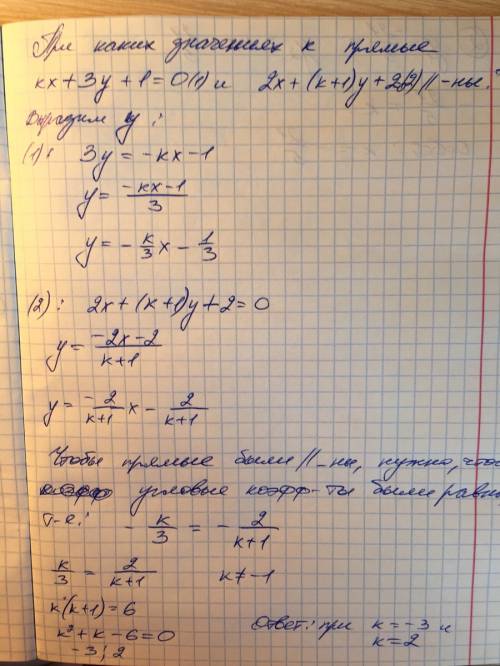 При каких значениях к прямые
кx + 3y + 1 = 0 (1) и 2x + (k+1)y + 2 (2) // -ны.
Выразим y:
(1): 3y = -кx - 1
y = \frac{-кx - 1}{3}
y = -\frac{к}{3}x - \frac{1}{3}
(2): 2x + (к+1)y + 2 = 0
y = \frac{-2x - 2}{к+1}
y = \frac{-2}{к+1}x - \frac{2}{к+1}
Чтобы прямые были // -ны, нужно, что
угловые коэфф-ты были равн
т-е: -\frac{к}{3} = -\frac{2}{к+1}
\frac{к}{3} = \frac{2}{к+1} к ≠ -1
к(к+1) = 6
к² + к - 6 = 0
-3; 2
Ответ: при к = -3 и
к = 2